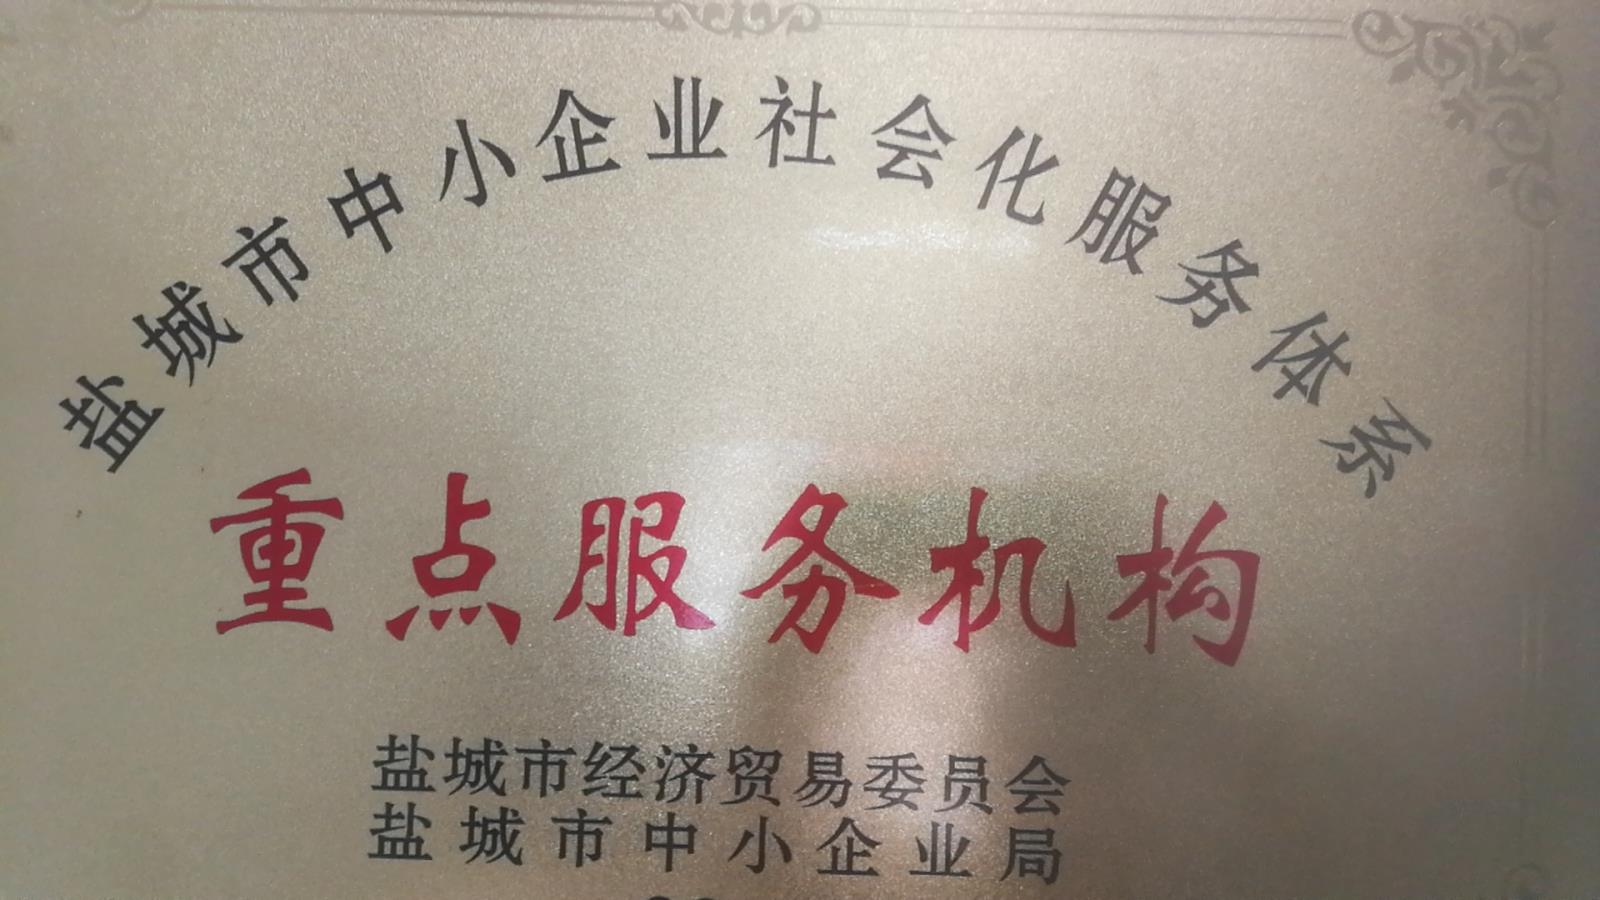 盐城市中小企业社会化服务体系
重点服务机构
盐城市经济贸易委员会
盐城市中小企业局